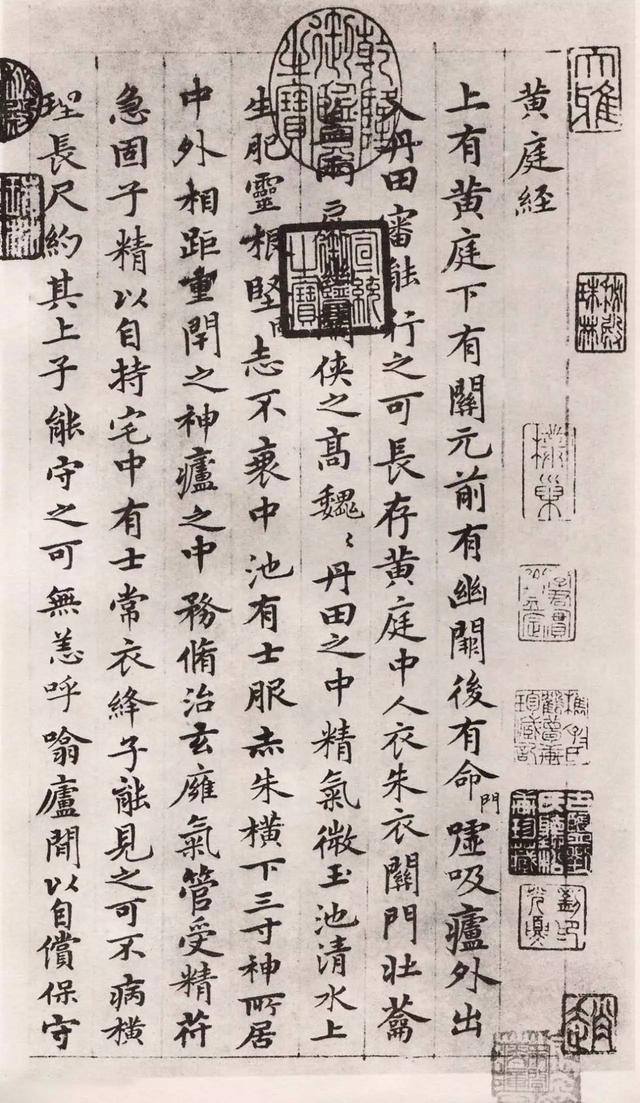 大雅
黄庭経
上有黄庭下有關元前有幽闕後有命門嘘吸廬外出
入丹田審能行之可長存黄庭中人衣朱衣關門壯蘥
蓋兩扉幽闕俠之高巍〻丹田之中精氣微玉池清水上
生肥靈根堅固志不衰中池有士服赤朱横下三寸神所居
中外相距重閇之神廬之中務脩治玄廱氣管受精苻
急固子精以自持宅中有士常衣絳子能見之可不病横
理長尺約其上子能守之可無恙呼噏廬間以自償保守
乾隆御覽之寶
宣統御覽之寶